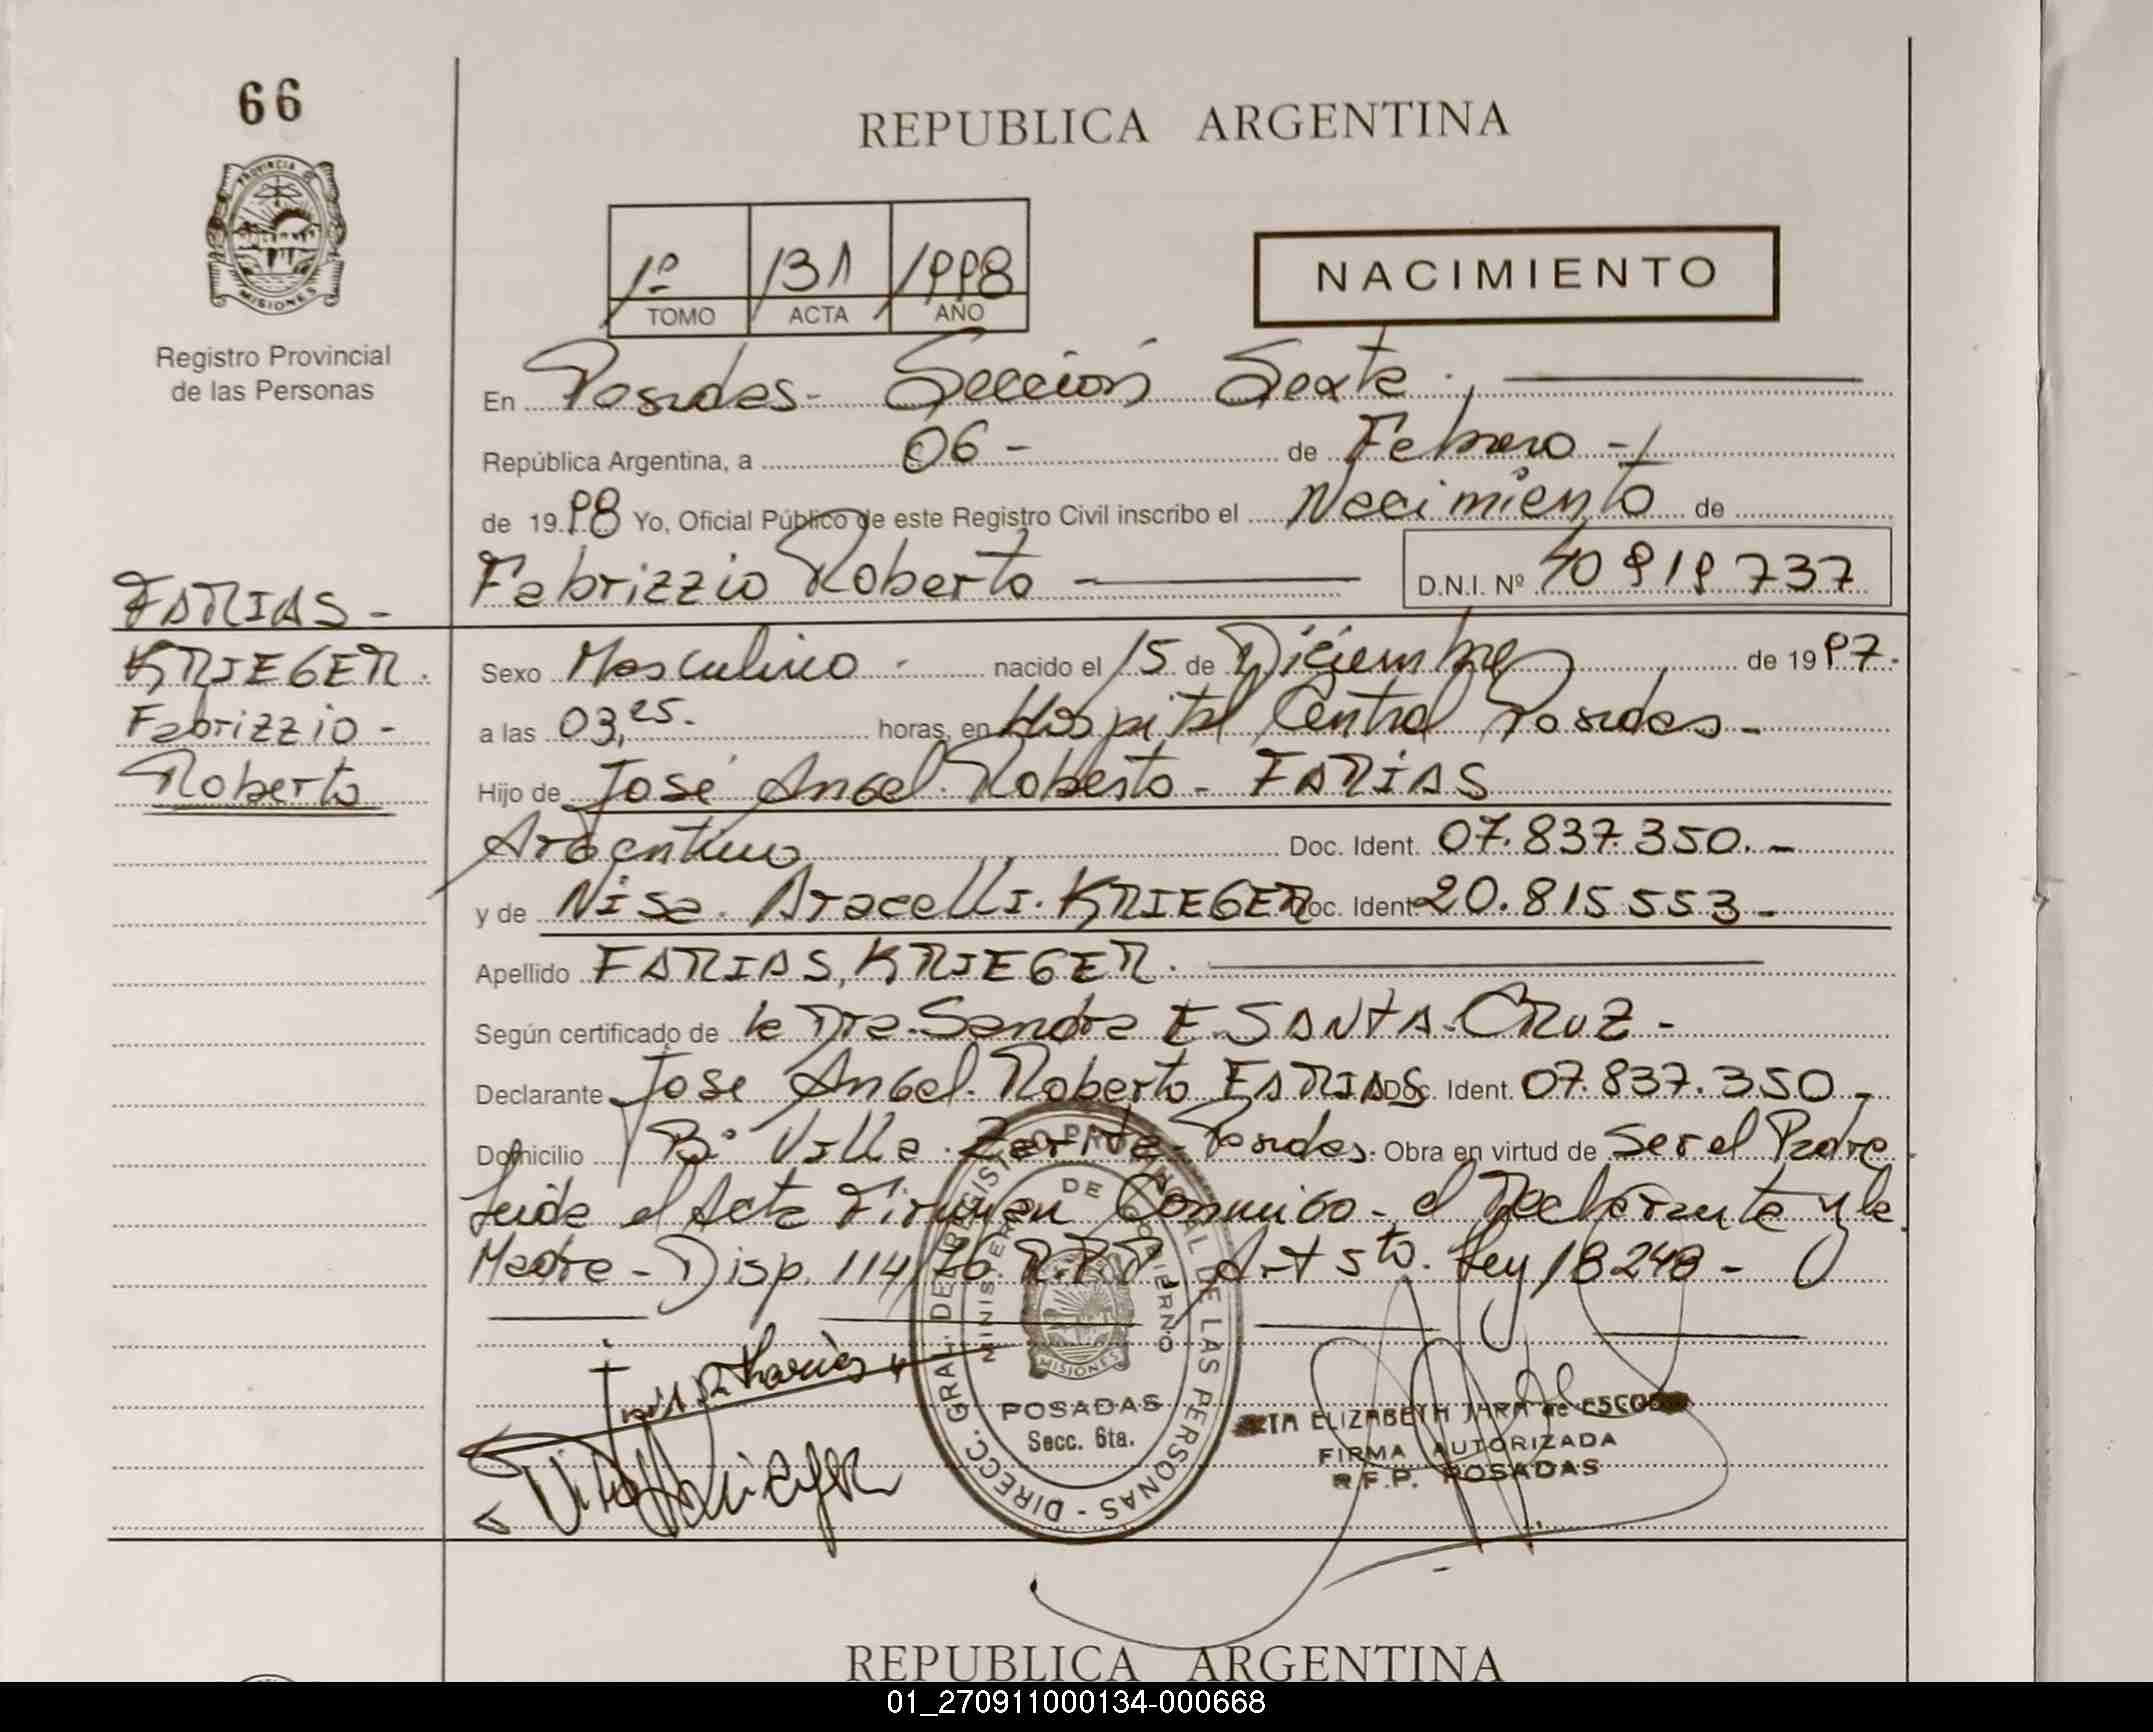 66
REPUBLICA ARGENTINA
PROVINCIA DE
MISIONES
Registro Provincial
de las Personas
1º 131 1998
TOMO ACTA AÑO
NACIMIENTO
En Posadas- Sección Sexta.
República Argentina, a 06- de Febrero -
de 1998 Yo, Oficial Público de este Registro Civil inscribo el Nacimiento de
Fabrizzio Roberto D.N.I. Nº 40919737
FARIAS-
KRIEGER.
Fabrizzio-
Roberto
Sexo Masculino - nacido el 15 de Diciembre de 1997.
a las 03,25. horas, en Hospital Central Posadas-
Hijo de José Angel Roberto- FARIAS
Argentino Doc. Ident. 07.837.350.-
y de Aracelli. KRIEGER Doc. Ident 20.815553-
Apellido FARIAS, KRIEGER.
Según certificado de la Dra. Sandra E. SANTA-CRUZ-
Declarante Jose Angel. Roberto FARIAS Doc. Ident. 07.837.350-
Domicilio Bº Villa Posadas. Obra en virtud de Ser el Padre
Leida el Acta Firman Conmigo- el Declarante y la
Madre- Disp. 114/76 R.P.P. Art 5to. Ley 18248-
DIRECC. GRAL. DE REGISTRO PROVINCIAL DE LAS PERSONAS -
MINISTERIO DE GOBIERNO
MISIONES
POSADAS
Secc. 6ta.
ELIZABETH JARA de
FIRMA AUTORIZADA
R.F.P. POSADAS
REPUBLICA ARGENTINA
01_270911000134-000668